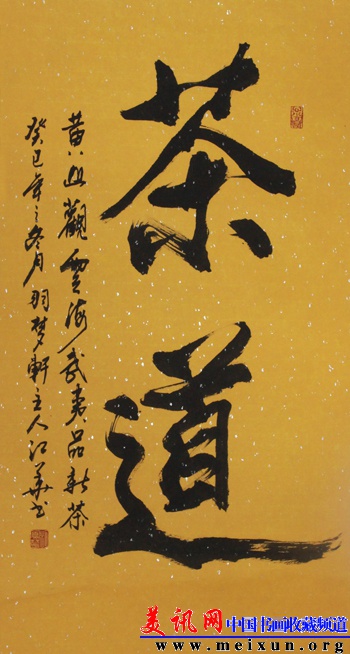 茶道
黄山觀雲海武夷品新茶
癸巳年之冬月羽梦軒主人江華书
美讯网 中国书画收藏频道
www.meixun.org